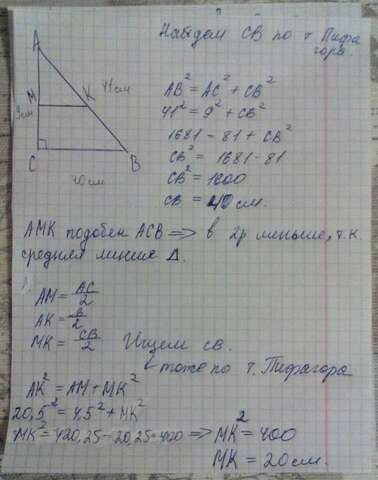 Найдем CB по т. Пифа
гора.
A
M
K
41см
9см
C
B
40см
AB² = AC² + CB²
41² = 9² + CB²
1681 - 81 + CB²
CB² = 1681 - 81
CB² = 1600
CB = 40 см.
AMK подобен ACB => в 2р меньше, т.к.
средняя линия Δ.
AM = AC/2
AK = /2
MK = CB/2 Ищем св.
тоже по т. Пифагора
AK² = AM + MK²
20,5² = 4,5² + MK²
MK² = 420,25 - 20,25 = 400 => MK² = 400
MK = 20 см.